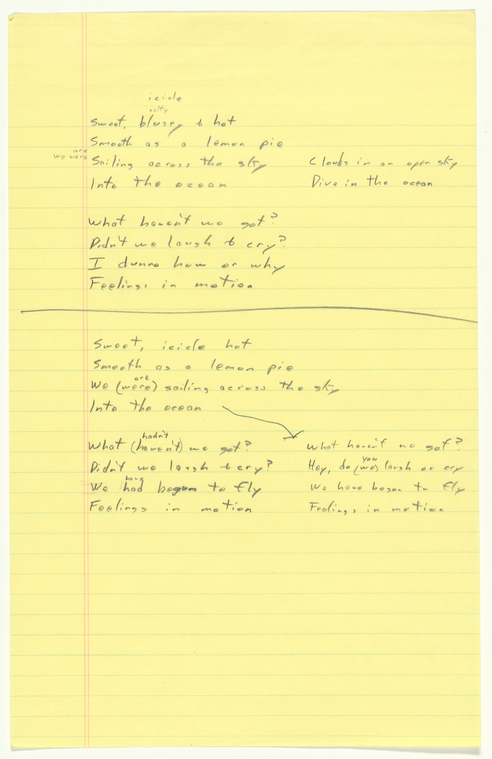 icicle
salty
Sweet, bluesy & hot
Smooth as a lemon pie
are
we were
Sailing across the sky
Clouds in an open sky
Into the ocean
Dive in the ocean
What haven't we got?
Didn't we laugh & cry?
I dunno how or why
Feelings in motion
Sweet, icicle hot
Smooth as a lemon pie
are
We (were) sailing across the sky
Into the ocean
hadn't
What (haven't) we got?
What haven't we got?
you
Didn't we laugh & cry?
Hey, do (we) laugh or cry
have
We had began to fly
We have began to fly
Feelings in motion
Feelings in motion